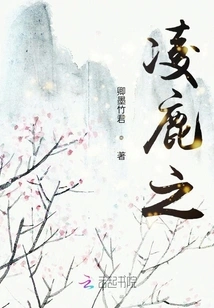 凌鹿之
卿墨竹君
。著
云起书院